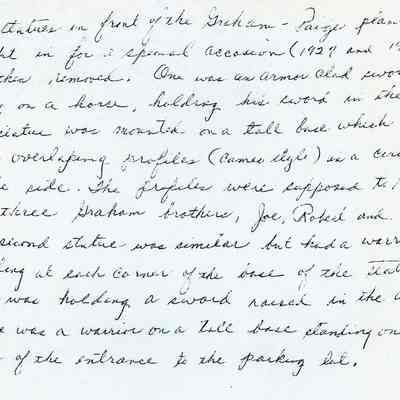 statues in front of the Graham-Paige plan
ht in for a special occasion (1927 and 19
then removed. One was an armor clad swor
g on a horse, holding his sword in the
statue was mounted on a tall base which
overlaping profiles (cameo style) in a circ
e side. The profiles were supposed to
three Graham brothers, Joe, Robert and
second statue was similar but had a warri
ling at each corner of the base of the stat
was holding a sword raised in the a
e was a warrior on a tall base standing on
of the entrance to the parking lot.